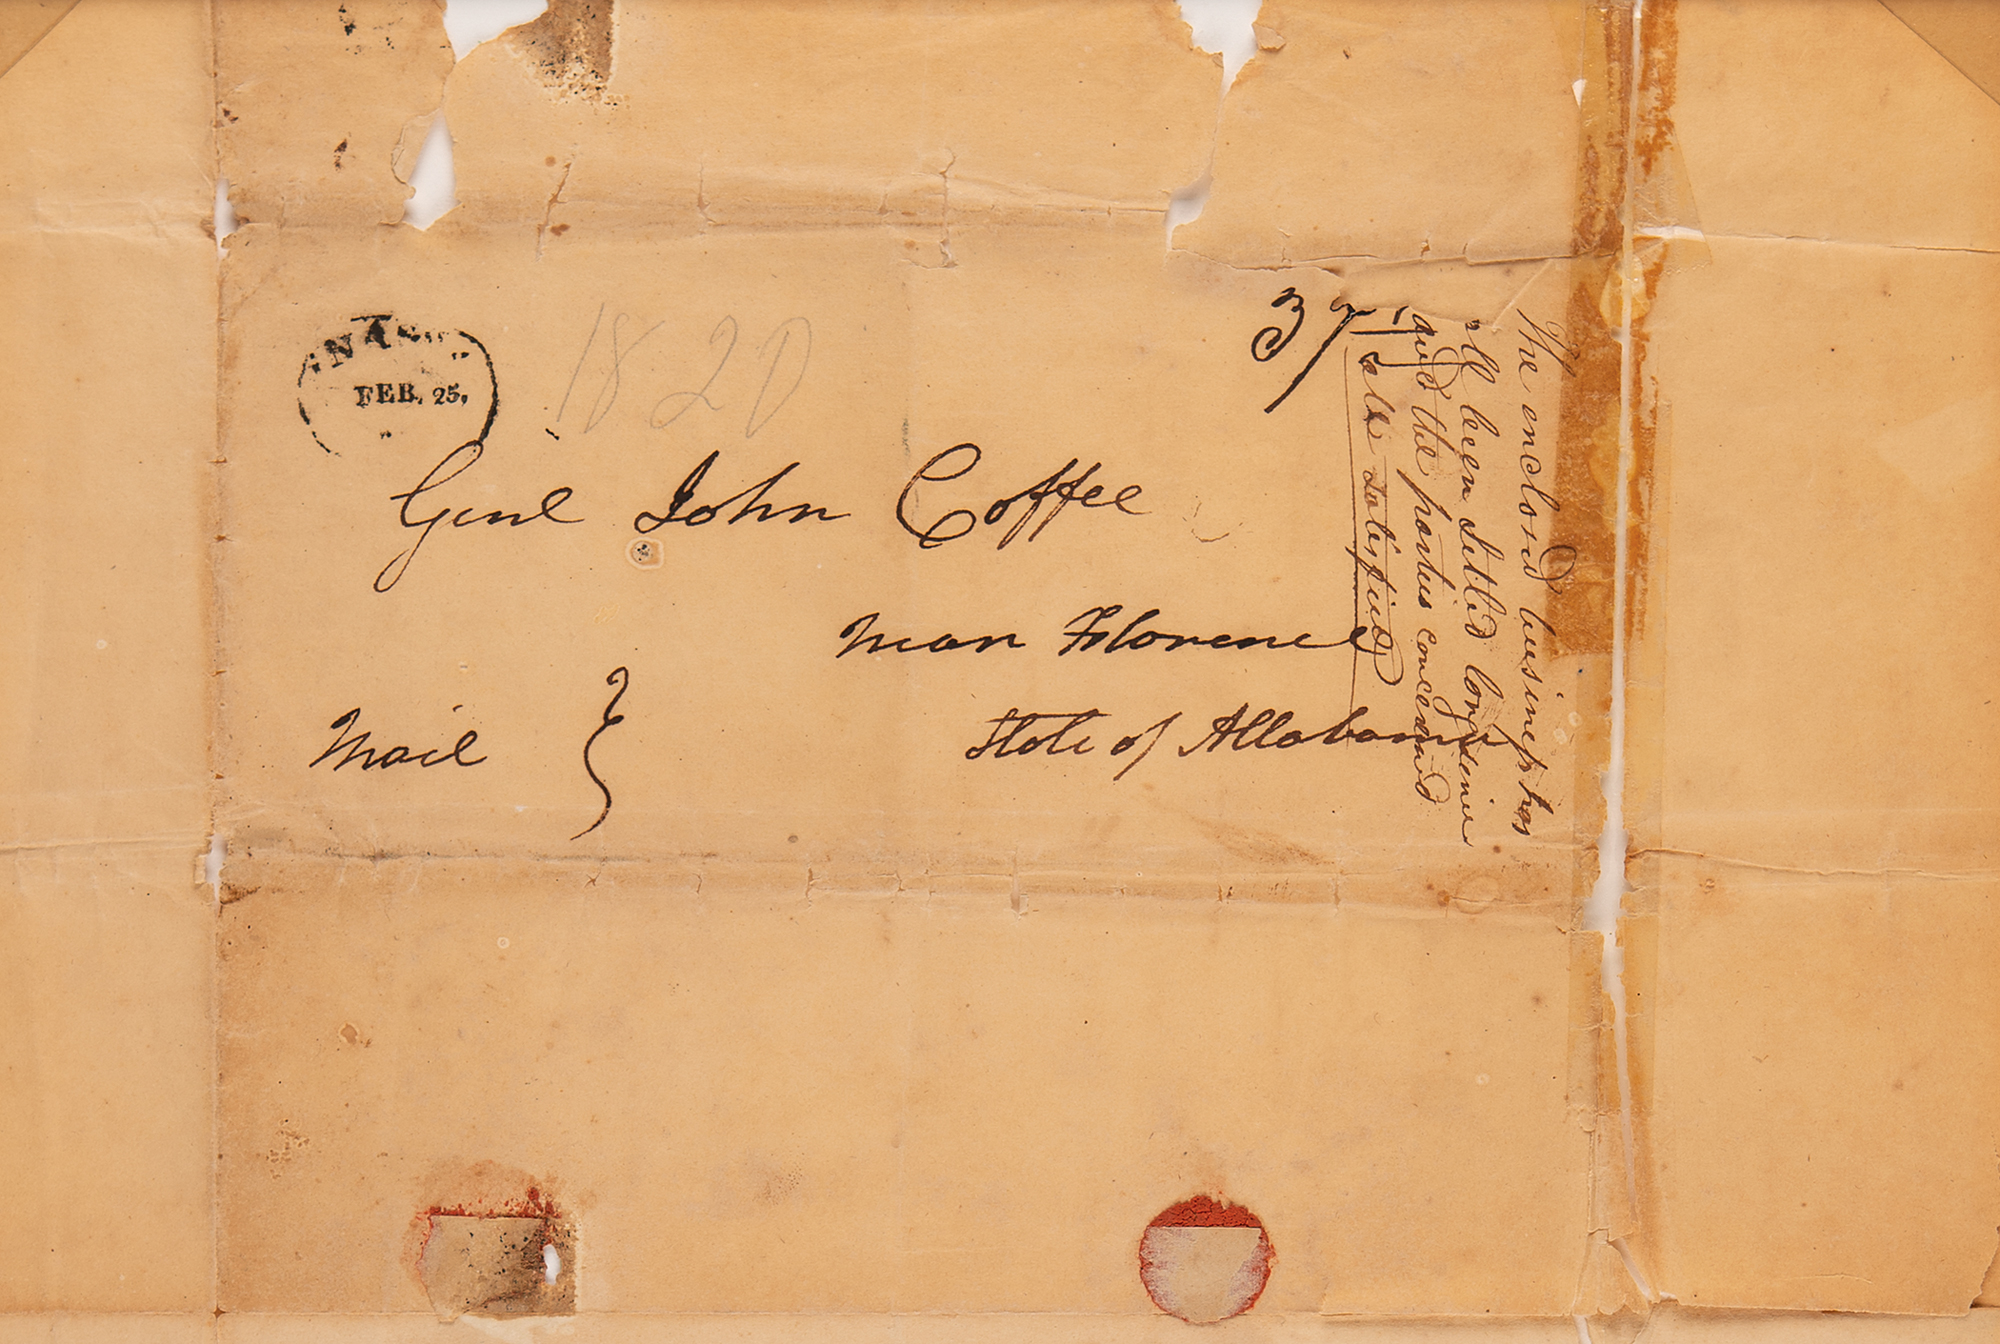 FEB. 25.
1820
37 1/2
Genl John Coffee
Near Florence
State of Allabama
Mail
The enclosed business has
all been settled long since
and the parties concerned
all satisfied